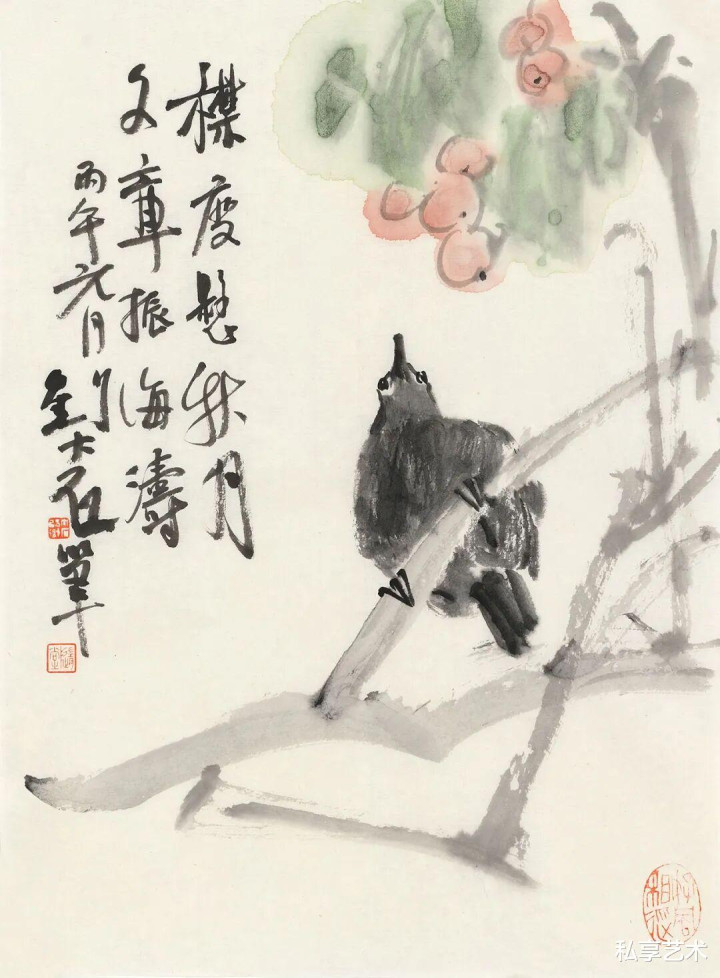 襟度懸秋月
文章振海濤
丙午元月
劉大石筆
私享艺术